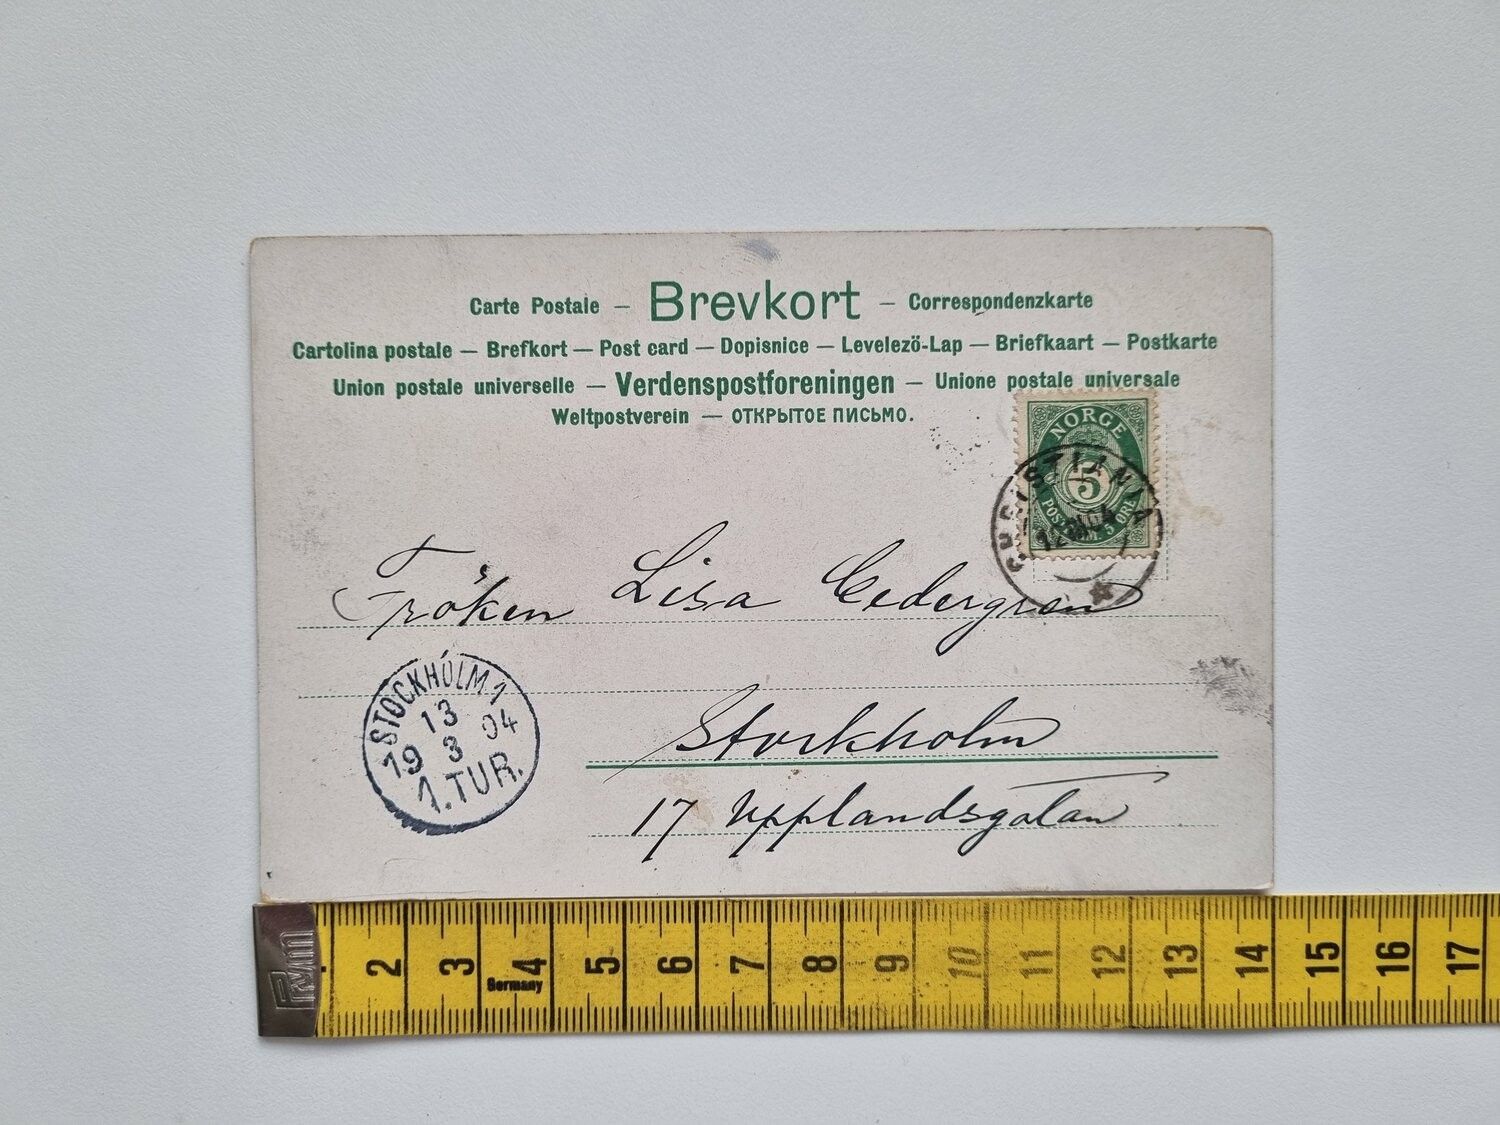 Carte Postale – Brevkort – Correspondenzkarte
Cartolina postale – Brefkort – Post card – Dopisnice – Levelezö-Lap – Briefkaart – Postkarte
Union postale universelle – Verdenspostforeningen – Unione postale universale
Weltpostverein – ОТКРЫТОЕ ПИСЬМО.
NORGE
5
POSTFRIM. 5 ØRE
CHRISTIANIA
12 III 04
Fröken Lisa Cedergren
Stockholm
17 Upplandsgatan
STOCKHOLM 1
13
19 3 04
1. TUR.
2 3 4 5 6 7 8 9 10 11 12 13 14 15 16 17
Germany